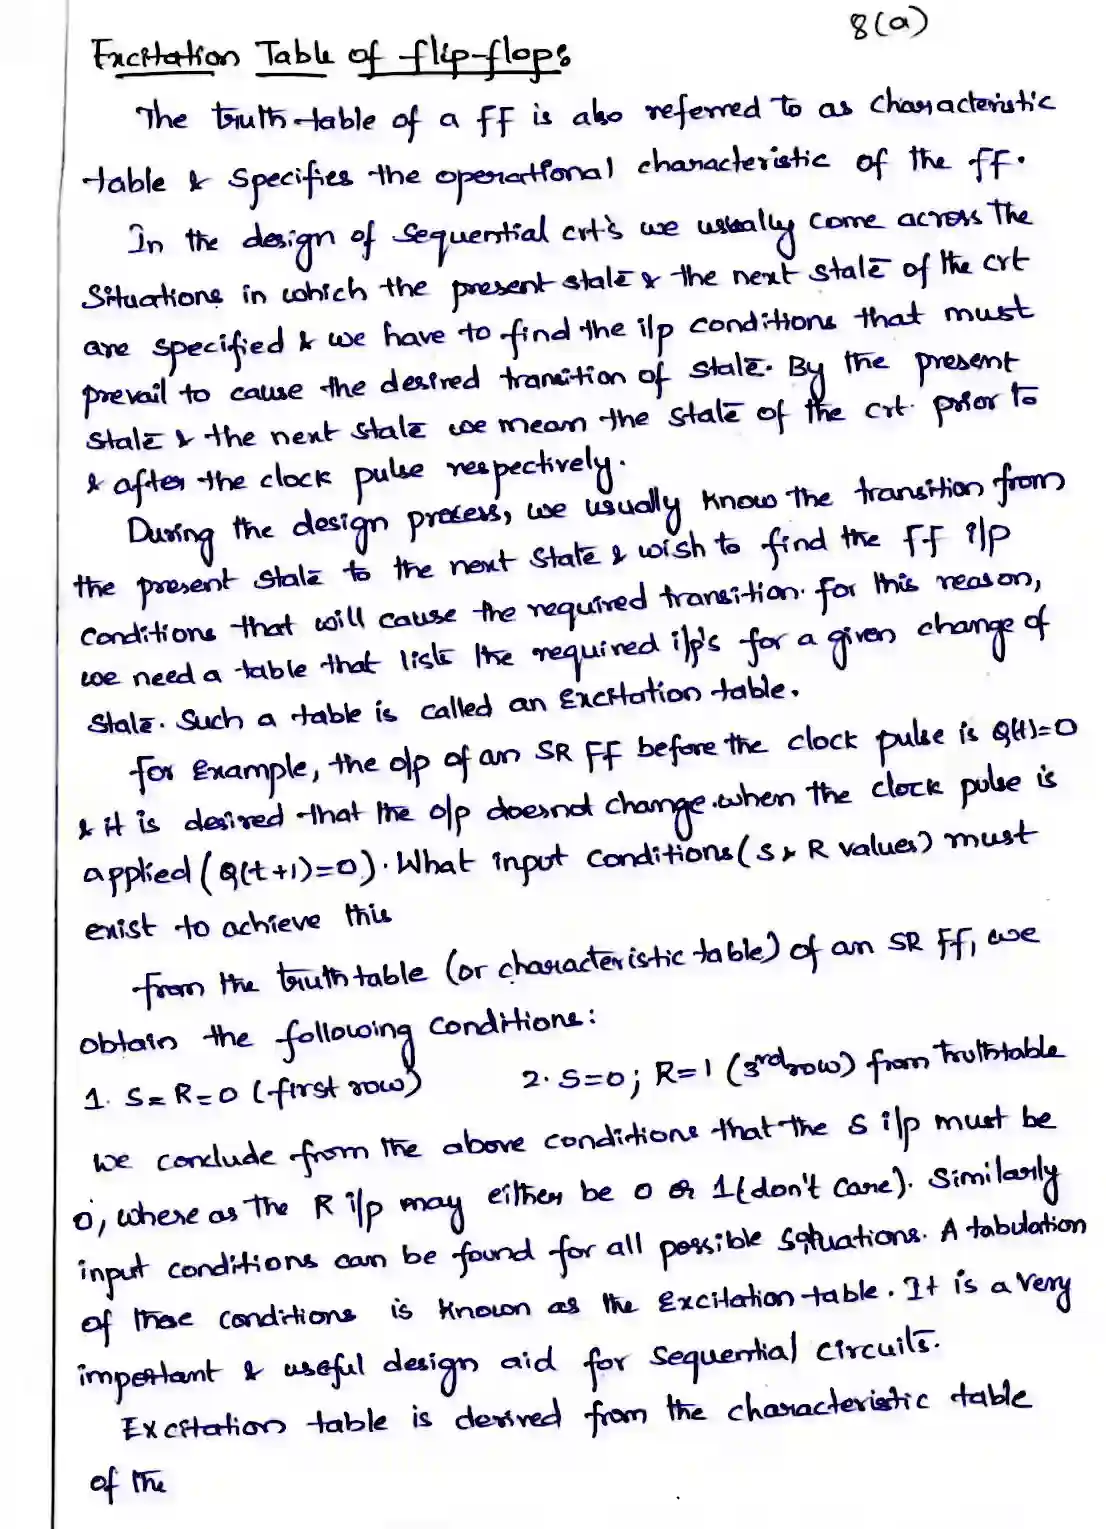 8(a)
Excitation Table of flip-flops
The truth-table of a FF is also referred to as characteristic
table & specifies the operational characteristic of the FF.
In the design of sequential crt's we usually come across the
situations in which the present state & the next state of the crt
are specified & we have to find the i/p conditions that must
prevail to cause the desired transition of state. By the present
state & the next state we mean the state of the crt. prior to
& after the clock pulse respectively.
During the design process, we usually know the transition from
the present state to the next state & wish to find the FF i/p
conditions that will cause the required transition. For this reason,
we need a table that lists the required i/p's for a given change of
state. Such a table is called an Excitation table.
for Example, the o/p of an SR FF before the clock pulse is Q(t)=0
& it is desired that the o/p doesnot change.when the clock pulse is
applied (Q(t+1)=0). What input conditions (S & R values) must
exist to achieve this
From the truth table (or characteristic table) of an SR FF, we
obtain the following conditions:
1. S=R=0 (first row) 2. S=0; R=1 (3rd row) from truthtable
We conclude from the above conditions that the S i/p must be
0, where as the R i/p may either be 0 or 1 (don't care). Similarly
input conditions can be found for all possible situations. A tabulation
of these conditions is known as the Excitation table. It is a very
important & useful design aid for sequential circuits.
Excitation table is derived from the characteristic table
of the